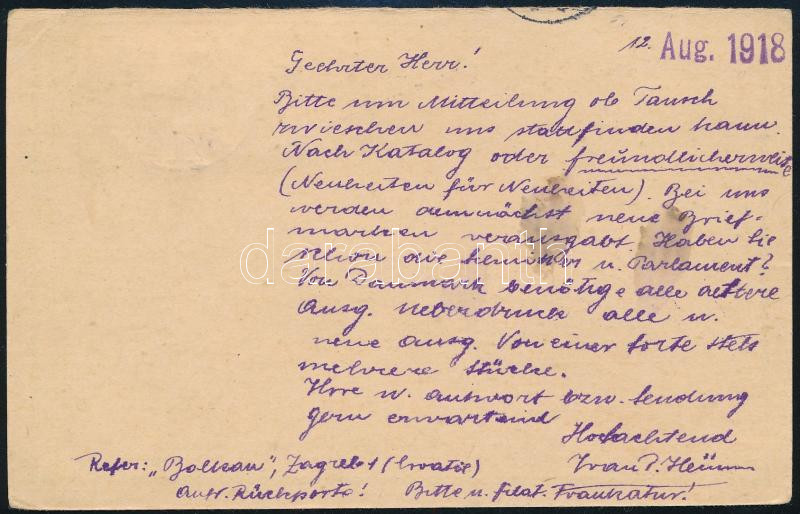 12. Aug. 1918
Geehrter Herr!
Bitte um Mitteilung ob Tausch
zwieschen uns stattfinden kann.
Nach Katalog oder freundlicherweise
(Neuheiten für Neuheiten). Bei uns
werden demnächst neue Brief-
marken verausgabt. Haben Sie
schon die u. Parlament?
Von Danmark benötige alle aeltere
Ausg. Ueberdruck alle u.
neue Ausg. Von einer Sorte stets
mehrere Stücke.
Ihre w. Antwort bzw. Sendung
gern erwartend
Hochachtend
Ivan P.
Refer: "Balkan", Zagreb 1 (Croatie)
Antw. Rückporto! Bitte u. filat. Frankatur!
darabanth